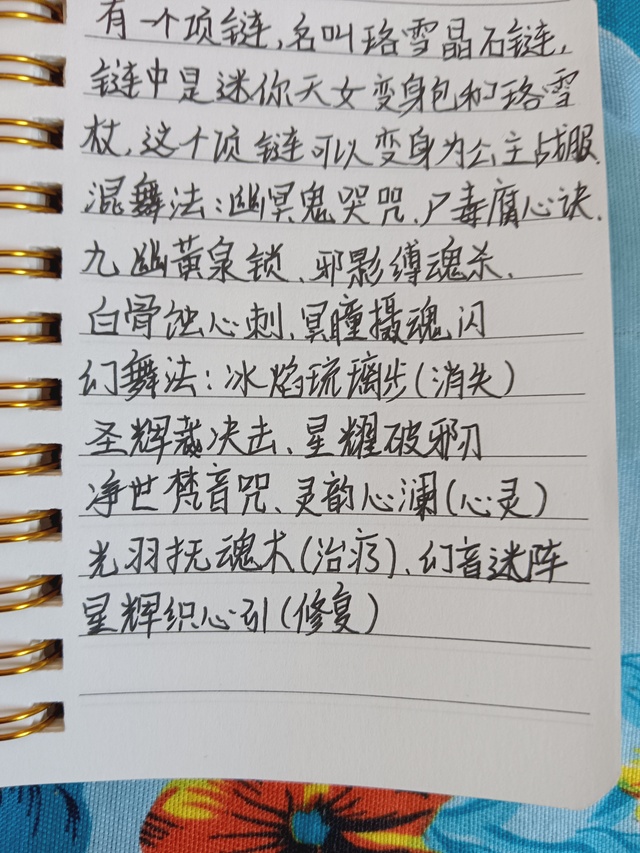 有一个项链,名叫珞雪晶石链,
链中是迷你天女变身包和珞雪
杖,这个项链可以变身为公主战服.
混舞法:幽冥鬼哭咒、尸毒腐心诀.
九幽黄泉锁、邪影缚魂杀、
白骨蚀心刺、冥瞳摄魂闪
幻舞法:冰焰琉璃步(消失)
圣辉裁决击、星耀破邪刃
净世梵音咒、灵韵心澜(心灵)
光羽抚魂术(治疗)、幻音迷阵
星辉织心引(修复)